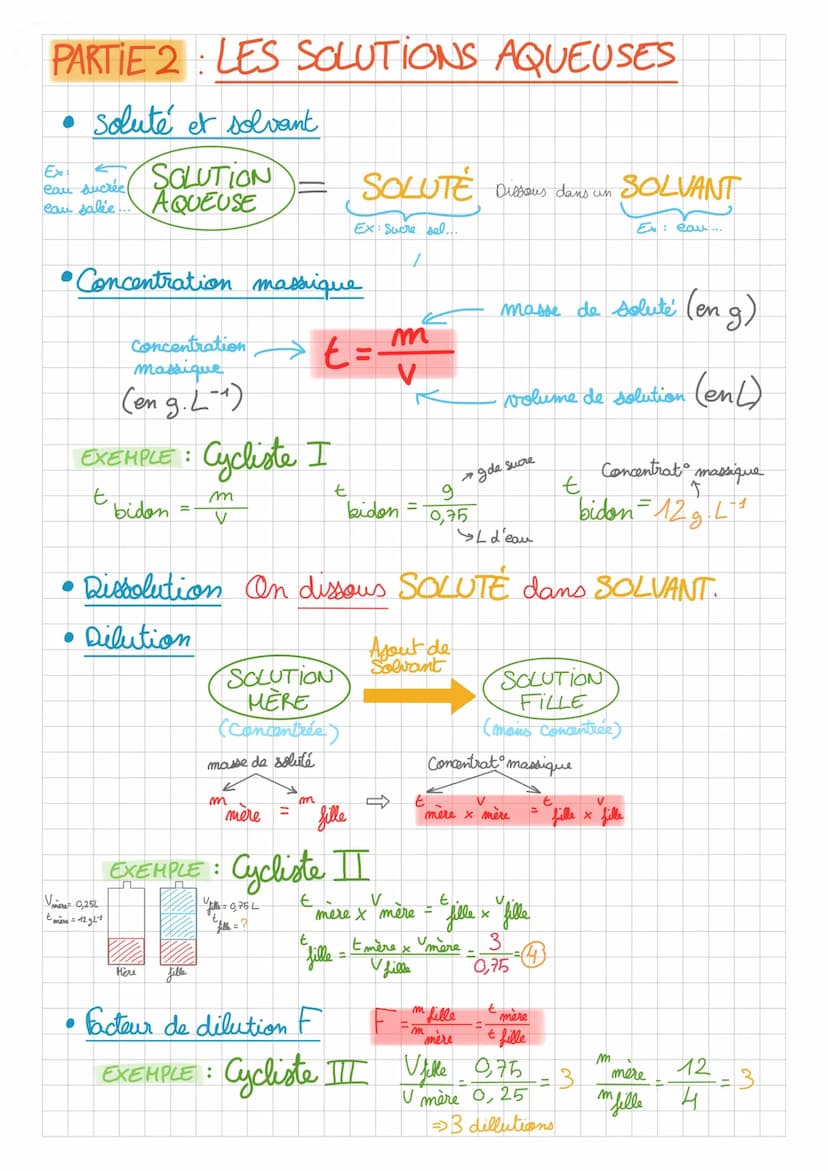 PARTIE 2 : LES SOLUTIONS AQUEUSES
• Soluté et solvant
Ex :
eau sucrée
eau salée...
SOLUTION
AQUEUSE
= SOLUTÉ Dissous dans un SOLVANT
Ex : Sucre sel...
Ex : eau...
• Concentration massique
masse de soluté (en g)
Concentration
massique
(en g.L⁻¹)
t = m / V
volume de solution (en L)
EXEMPLE : Cycliste I
t bidon = m / V
t bidon = 9 / 0,75
g de sucre
L d'eau
Concentrat° massique
t bidon = 12 g.L⁻¹
• Dissolution On dissous SOLUTÉ dans SOLVANT.
• Dilution
Ajout de
Solvant
SOLUTION
MÈRE
(Concentrée)
SOLUTION
FILLE
(moins concentrée)
masse de soluté
Concentrat° massique
m mère = m fille ⇨ t mère x V mère = t fille x V fille
EXEMPLE : Cycliste II
V mère = 0,25L
t mère = 12 g L⁻¹
V fille = 0,75 L
t fille = ?
Mère
fille
t mère x V mère = t fille x V fille
t fille = t mère x V mère / V fille = 3 / 0,75 = 4
• Facteur de dilution F
F = m fille / m mère = t mère / t fille
EXEMPLE : Cycliste III
V fille / V mère = 0,75 / 0,25 = 3
m mère / m fille = 12 / 4 = 3
⇒ 3 dillutions